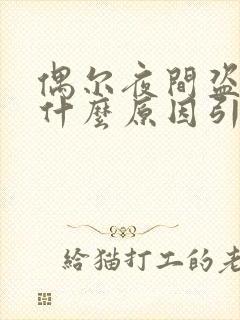 偶尔夜間盗
什麼原因引
給猫打工的老